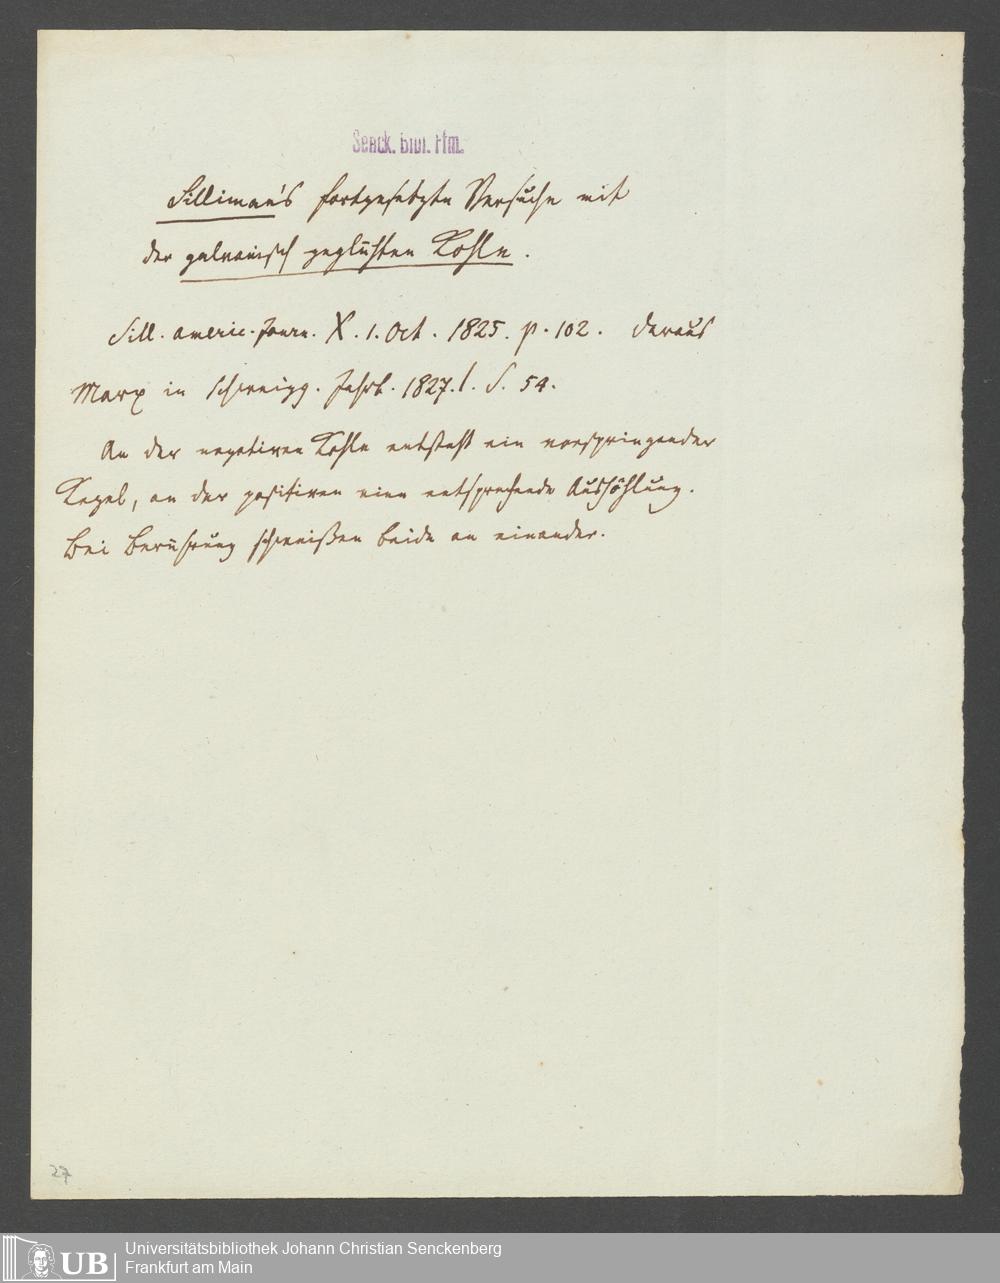 Senck. Bibl. Ffm.
Silliman's fortgesetzte Versuche mit
der galvanisch geglühten Kohle.
Sill. americ. Journ. X. 1. Oct. 1825. p. 102. daraus
Marx in Schweigg. Jahrb. 1827. I. S. 54.
An der negativen Kohle entsteht ein vorspringender
Kegel, an der positiven eine entsprechende Aushöhlung.
Bei Berührung schweißen beide an einander.
27
UB
Universitätsbibliothek Johann Christian Senckenberg
Frankfurt am Main